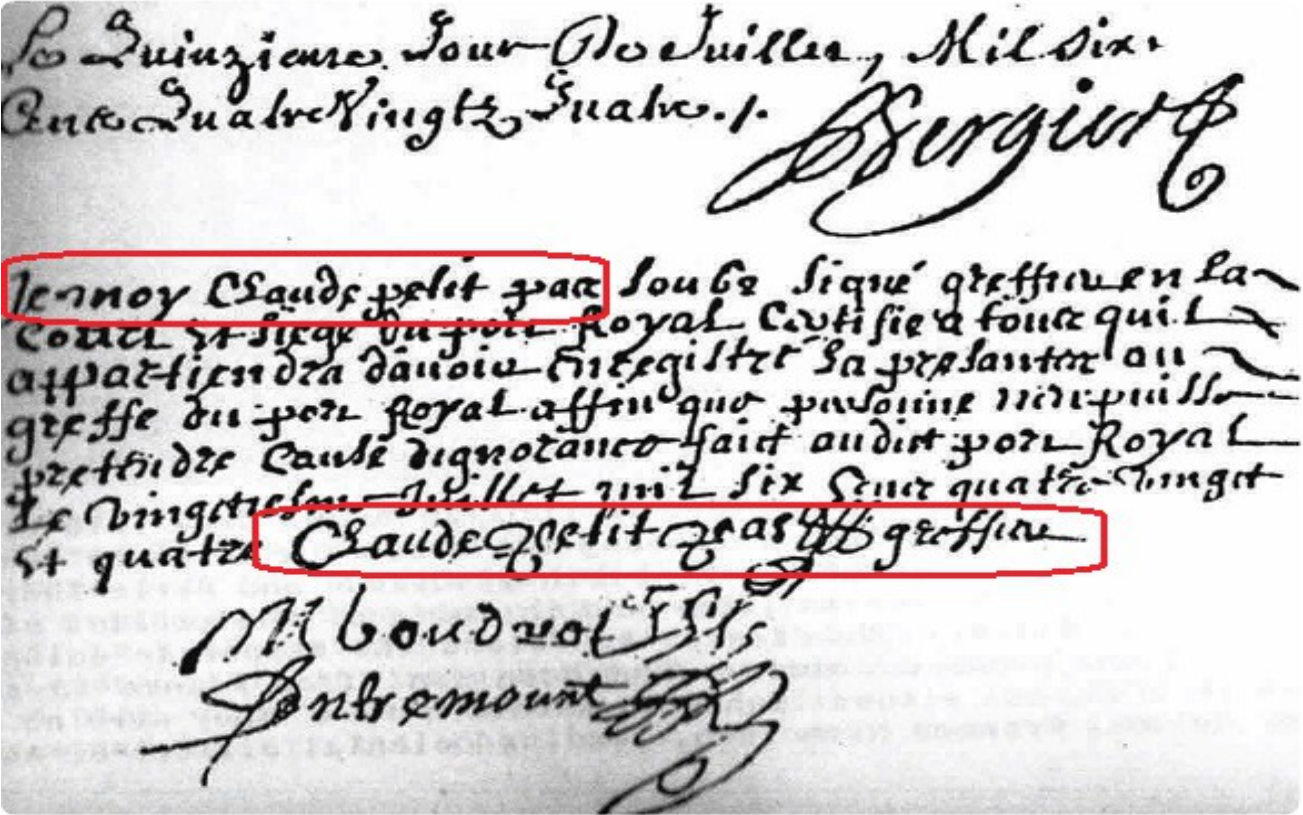 Le Quinzieme Jour De Juillet, Mil Six
Cents Quatre Vingtz Quatre ./.
Bergier
Je moy Claude petit pas soubz signé greffier en la
Court et siege du port Royal Certifie a tous quil
appartiendra davoir Enregistré la presante au
greffe du port Royal affin que personne nen puisse
pretendre Cause dignorance faict audict port Royal
Le vingt Juillet mil six Cent quatre vingt
Et quatre Claude petit pas greffier
M boudrot
Dentremount